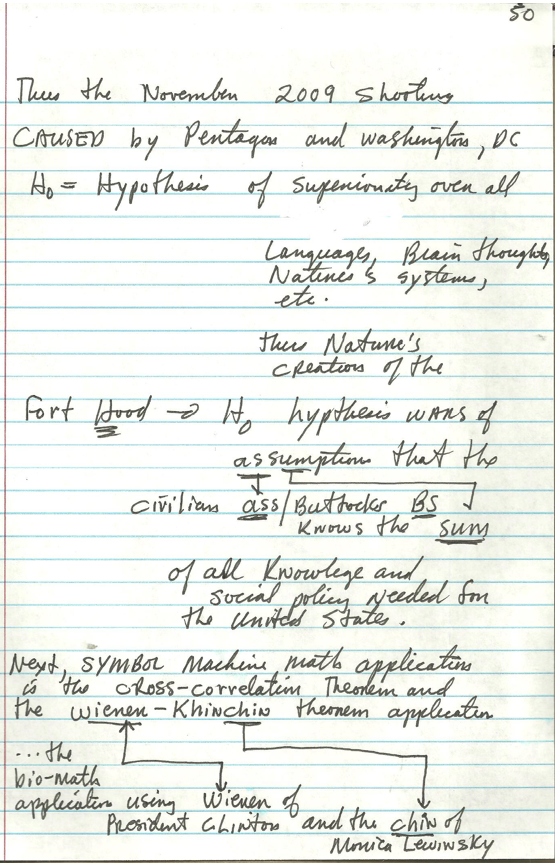 50
Thus the November 2009 Shooting
CAUSED by Pentagon and Washington, DC
H0 = Hypothesis of Superiority over all
Languages, Brain thoughts,
Nature's systems,
etc.
thus Nature's
creation of the
Fort Hood → H0 hypthesis wars of
assumptions that the
civilian ass/Buttocks BS
knows the sum
of all Knowlege and
social policy needed for
the United States.
Next, SYMBOL machine math application
is the cross-correlation Theorem and
the Wiener-Khinchin theorem application
...the
bio-math
application using Wiener of
President Clinton and the chin of
Monica Lewinsky